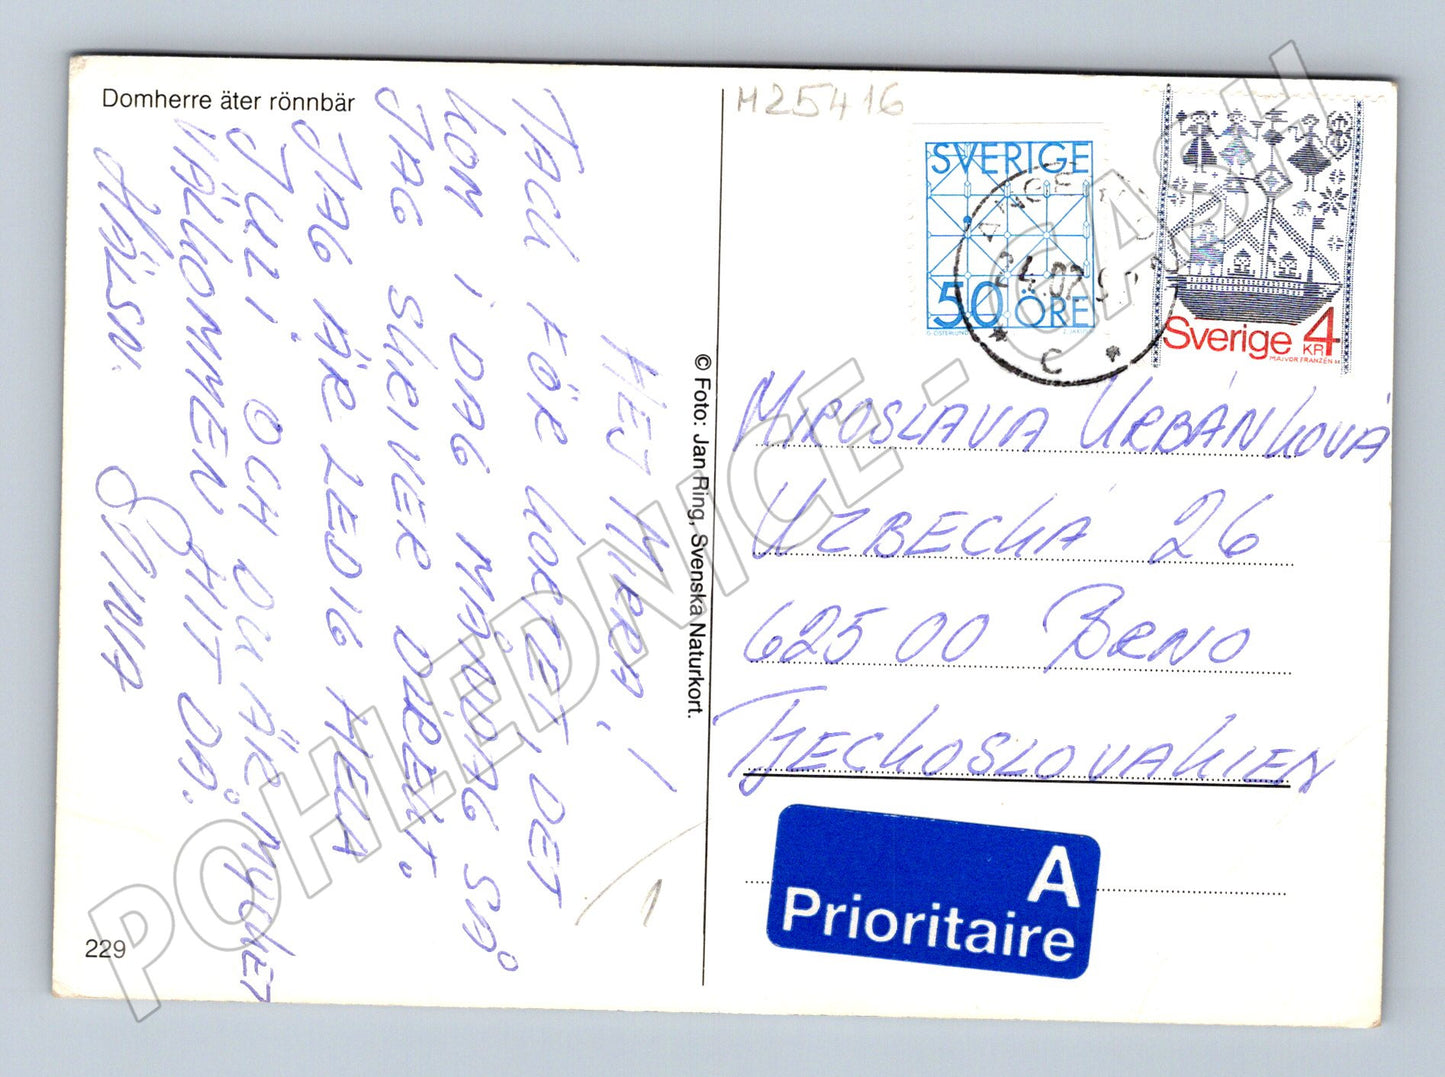 Domherre äter rönnbär
HEJ MIRA!
TACK FÖR KORTET, DET
KOM I DAG MÅNDAG SÅ
JAG SKRIVER DIREKT.
JAG ÄR LEDIG HELA
JULI OCH DU ÄR MYCKET
VÄLKOMMEN HIT DÅ.
HÄLSN.
STINA
229
© Foto: Jan Ring, Svenska Naturkort.
M25416
SVERIGE
50 ÖRE
ÅNGE
24.02.9
C
Sverige 4
KR
MAJVOR FRANZÉN M
MIROSLAVA URBÁNKOVÁ
UZBECKÁ 26
625 00 BRNO
TJECKOSLOVAKIEN
A
Prioritaire
1
POHLEDNICE - CASH